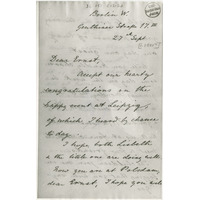 Berlin W.
Genthiner Strasse 17 III
27th Sept.
Dear Ernst,
Accept our hearty
congratulations on the
happy event at Leipzig
of which I heard by chance
to day.
I hope both Lisbeth
& the little one are doing well
Now you are at Potsdam,
dear Ernst, I hope you will